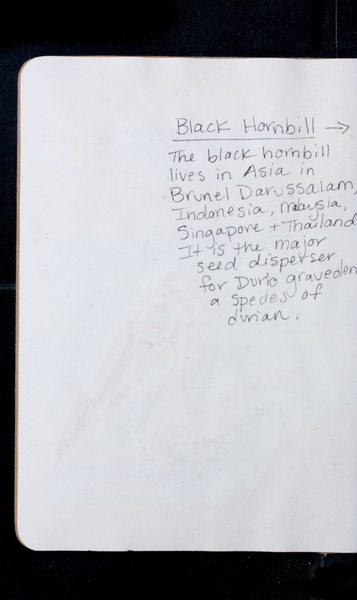 Black Hornbill →
The black hornbill
lives in Asia in
Brunel Darussalam,
Indonesia, Malaysia,
Singapore + Thailand
It is the major
seed disperser
for Durio graveden
a species of
durian.